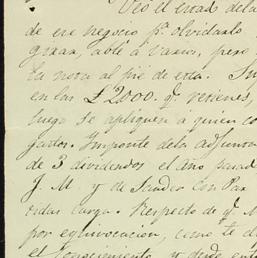 Veo el errad dela
de ese negocio pª olvidarlo
granar, able á varios, pero
la nota al pié de esta. Su
en las £2000. q. retienes,
luego se apliquen á quien co
gastos. Importe dela adjunta
de 3 dividendos el año pasad
J. M. y de Sander Con Pax
carga. Respecto de q. M
por equivocacion, como te d
el Conocimiento y desde enton